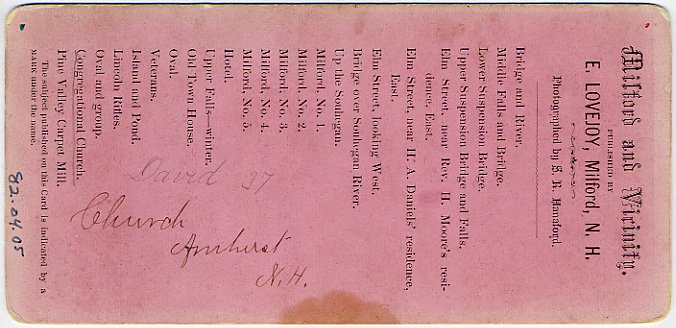 Milford and Vicinity.
PUBLISHED BY
E. LOVEJOY, Milford, N. H.
Photographed by S. R. Hanaford.
Bridge and River.
Middle Falls and Bridge.
Lower Suspension Bridge.
Upper Suspension Bridge and Falls.
Elm Street, near Rev. H. Moore's resi-
dence, East.
Elm Street, near H. A. Daniels' residence,
East.
Elm Street, looking West.
Bridge over Souhegan River.
Up the Souhegan.
Milford, No. 1.
Milford, No. 2.
Milford, No. 3.
Milford, No. 4.
Milford, No. 5.
Hotel.
Upper Falls—winter.
Old Town House.
Oval.
Veterans.
Island and Pond.
Lincoln Rifles.
Oval and group.
Congregational Church.
Pine Valley Carpet Mill.
The subject published on this Card is indicated by a
MARK under the name.
David 97
Church
Amherst
N.H.
82.04.05